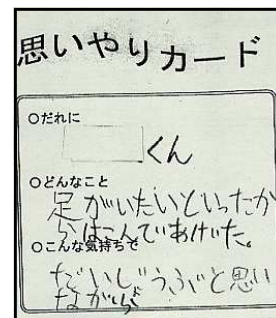 思いやりカード
○だれに
くん
○どんなこと
足がいたいといったか
らはこんでいあげた。
○こんな気持ちで
だいじょうぶと思い
ながら